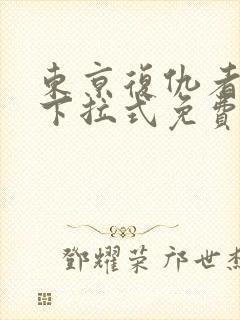 東京復仇者
下拉式免費
鄧耀荣 邝世杰